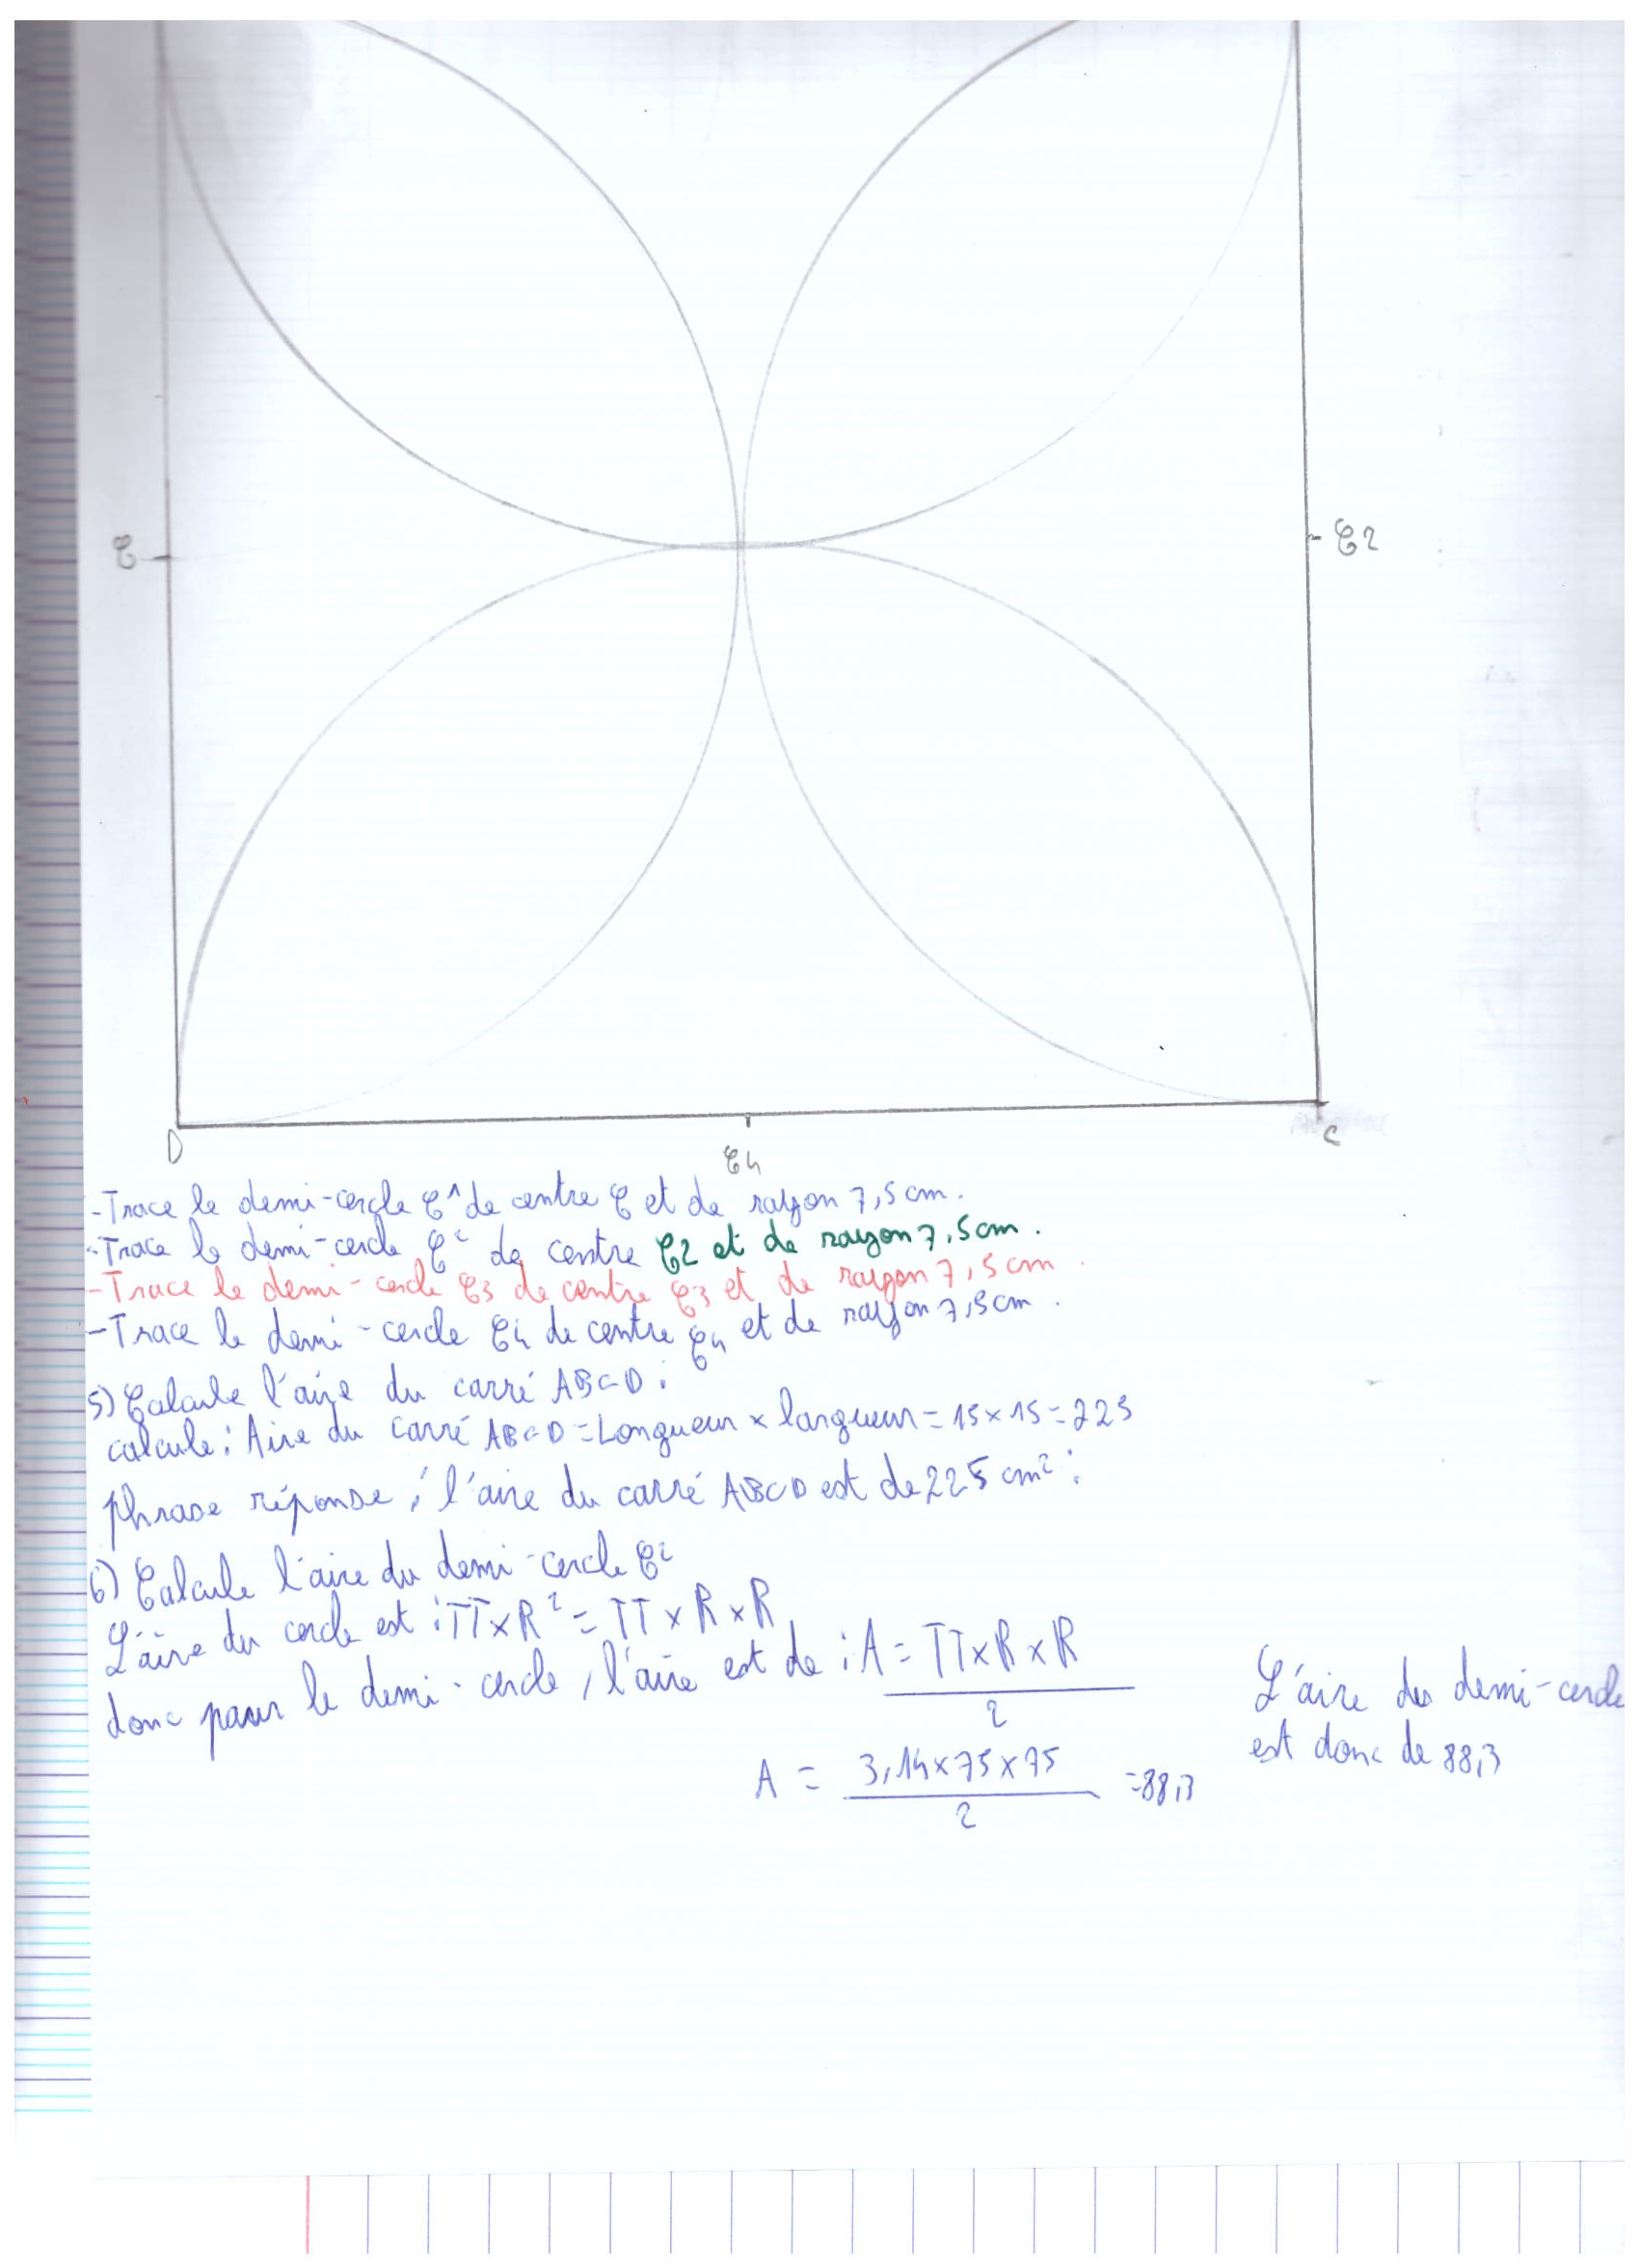 C
C2
D
C
C4
-Trace le demi-cercle C1 de centre C et de rayon 7,5 cm.
-Trace le demi-cercle C2 de centre C2 et de rayon 7,5 cm.
-Trace le demi-cercle C3 de centre C3 et de rayon 7,5 cm
-Trace le demi-cercle C4 de centre C4 et de rayon 7,5 cm.
5) Calcule l'aire du carré ABCD :
calcule : Aire du carré ABCD = Longueur x largueur = 15 x 15 = 225
phrase réponse : l'aire du carré ABCD est de 225 cm² :
6) Calcule l'aire du demi-cercle C2
L'aire du cercle est : π x R² = π x R x R
donc pour le demi-cercle, l'aire est de : A = π x R x R
2
A = 3,14 x 75 x 75 = 88,3
2
L'aire des demi-cercle
est donc de 88,3